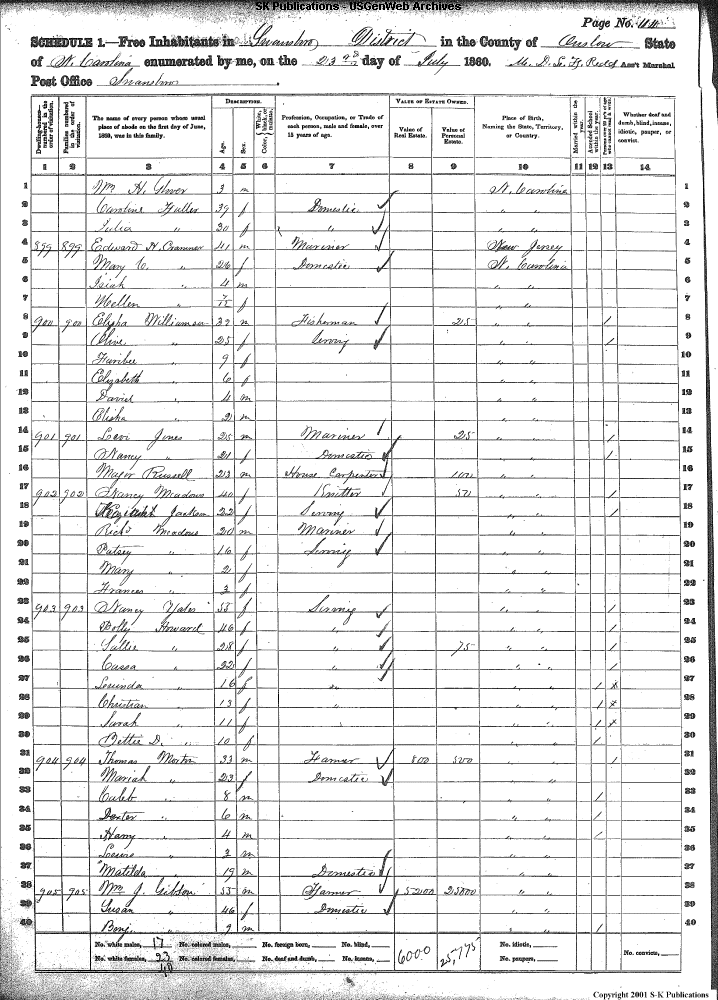 SK Publications - USGenWeb Archives
Page No. 44
SCHEDULE 1.—Free Inhabitants in Swansboro District in the County of Onslow State
of N. Carolina enumerated by me, on the 23rd day of July 1860. Ass't Marshal
Post Office Swansboro
Dwelling-houses—numbered in the order of visitation.
Families numbered in the order of visitation.
The name of every person whose usual place of abode on the first day of June, 1860, was in this family.
DESCRIPTION.
Age.
Sex.
Color, White, black, or mulatto.
Profession, Occupation, or Trade of each person, male and female, over 15 years of age.
VALUE OF ESTATE OWNED.
Value of Real Estate.
Value of Personal Estate.
Place of Birth, Naming the State, Territory, or Country.
Married within the year.
Attended School within the year.
Whether deaf and dumb, blind, insane, idiotic, pauper, or convict.
1 2 3 4 5 6 7 8 9 10 11 12 13 14
1 Wm H. Glover 3 m N. Carolina 1
2 Caroline Fuller 39 f Domestic " " 2
3 Julia " 20 f " " " 3
4 899 899 Edward H. Cranmer 41 m Mariner New Jersey 4
5 Mary C. " 26 f Domestic N. Carolina 5
6 Isiah " 4 m " " 6
7 Hellen " 7/12 f " " 7
8 900 900 Elisha Williamson 32 m Fisherman 25 " " / 8
9 Olive " 25 f Sewing " " / 9
10 " 9 f " " 10
11 Elizabeth " 6 f " " 11
12 David " 4 m " " 12
13 Elisha " 2 m " " 13
14 901 901 Levi Jones 25 m Mariner 25 " " / 14
15 Nancy " 21 f Domestic " " / 15
16 Major Russell 23 m House Carpenter 100 " " 16
17 902 902 Nancy Meadows 40 f Knitter 50 " " / 17
18 Jackson 22 f Sewing " " / 18
19 Richd Meadows 20 m Mariner " " 19
20 Patsey " 16 f Sewing " " 20
21 Mary " 2 f " " 21
22 Frances " 3 f " " 22
23 903 903 Nancy Yates 55 f Sewing " " / 23
24 Dolly Howard 46 f " " " / 24
25 Sallie " 28 f " 75 " " / 25
26 Cassa " 22 f " " " / 26
27 " 16 f " " " / x 27
28 Christian " 13 f " " " / x 28
29 Sarah " 11 f " " / x 29
30 Bettie D. " 10 f " " / 30
31 904 904 Thomas Morton 33 m Farmer 800 500 " " / 31
32 Mariah " 23 f Domestic " " 32
33 Caleb " 8 m " " / 33
34 Dexter " 6 m " " / 34
35 Harry " 4 m " " / 35
36 " 2 m " " 36
37 Matilda " 19 m Domestic " " 37
38 905 905 Wm J. Gibson 55 m Farmer 5200 25000 " " 38
39 Susan " 46 f Domestic " " 39
40 Benj. " 9 m " " / 40
No. white males, 17 No. colored males, No. foreign born, No. blind, 6000 25,775 No. idiotic, No. convicts,
No. white females, 23 No. colored females, No. deaf and dumb, No. insane, No. paupers,
40
Copyright 2001 S-K Publications